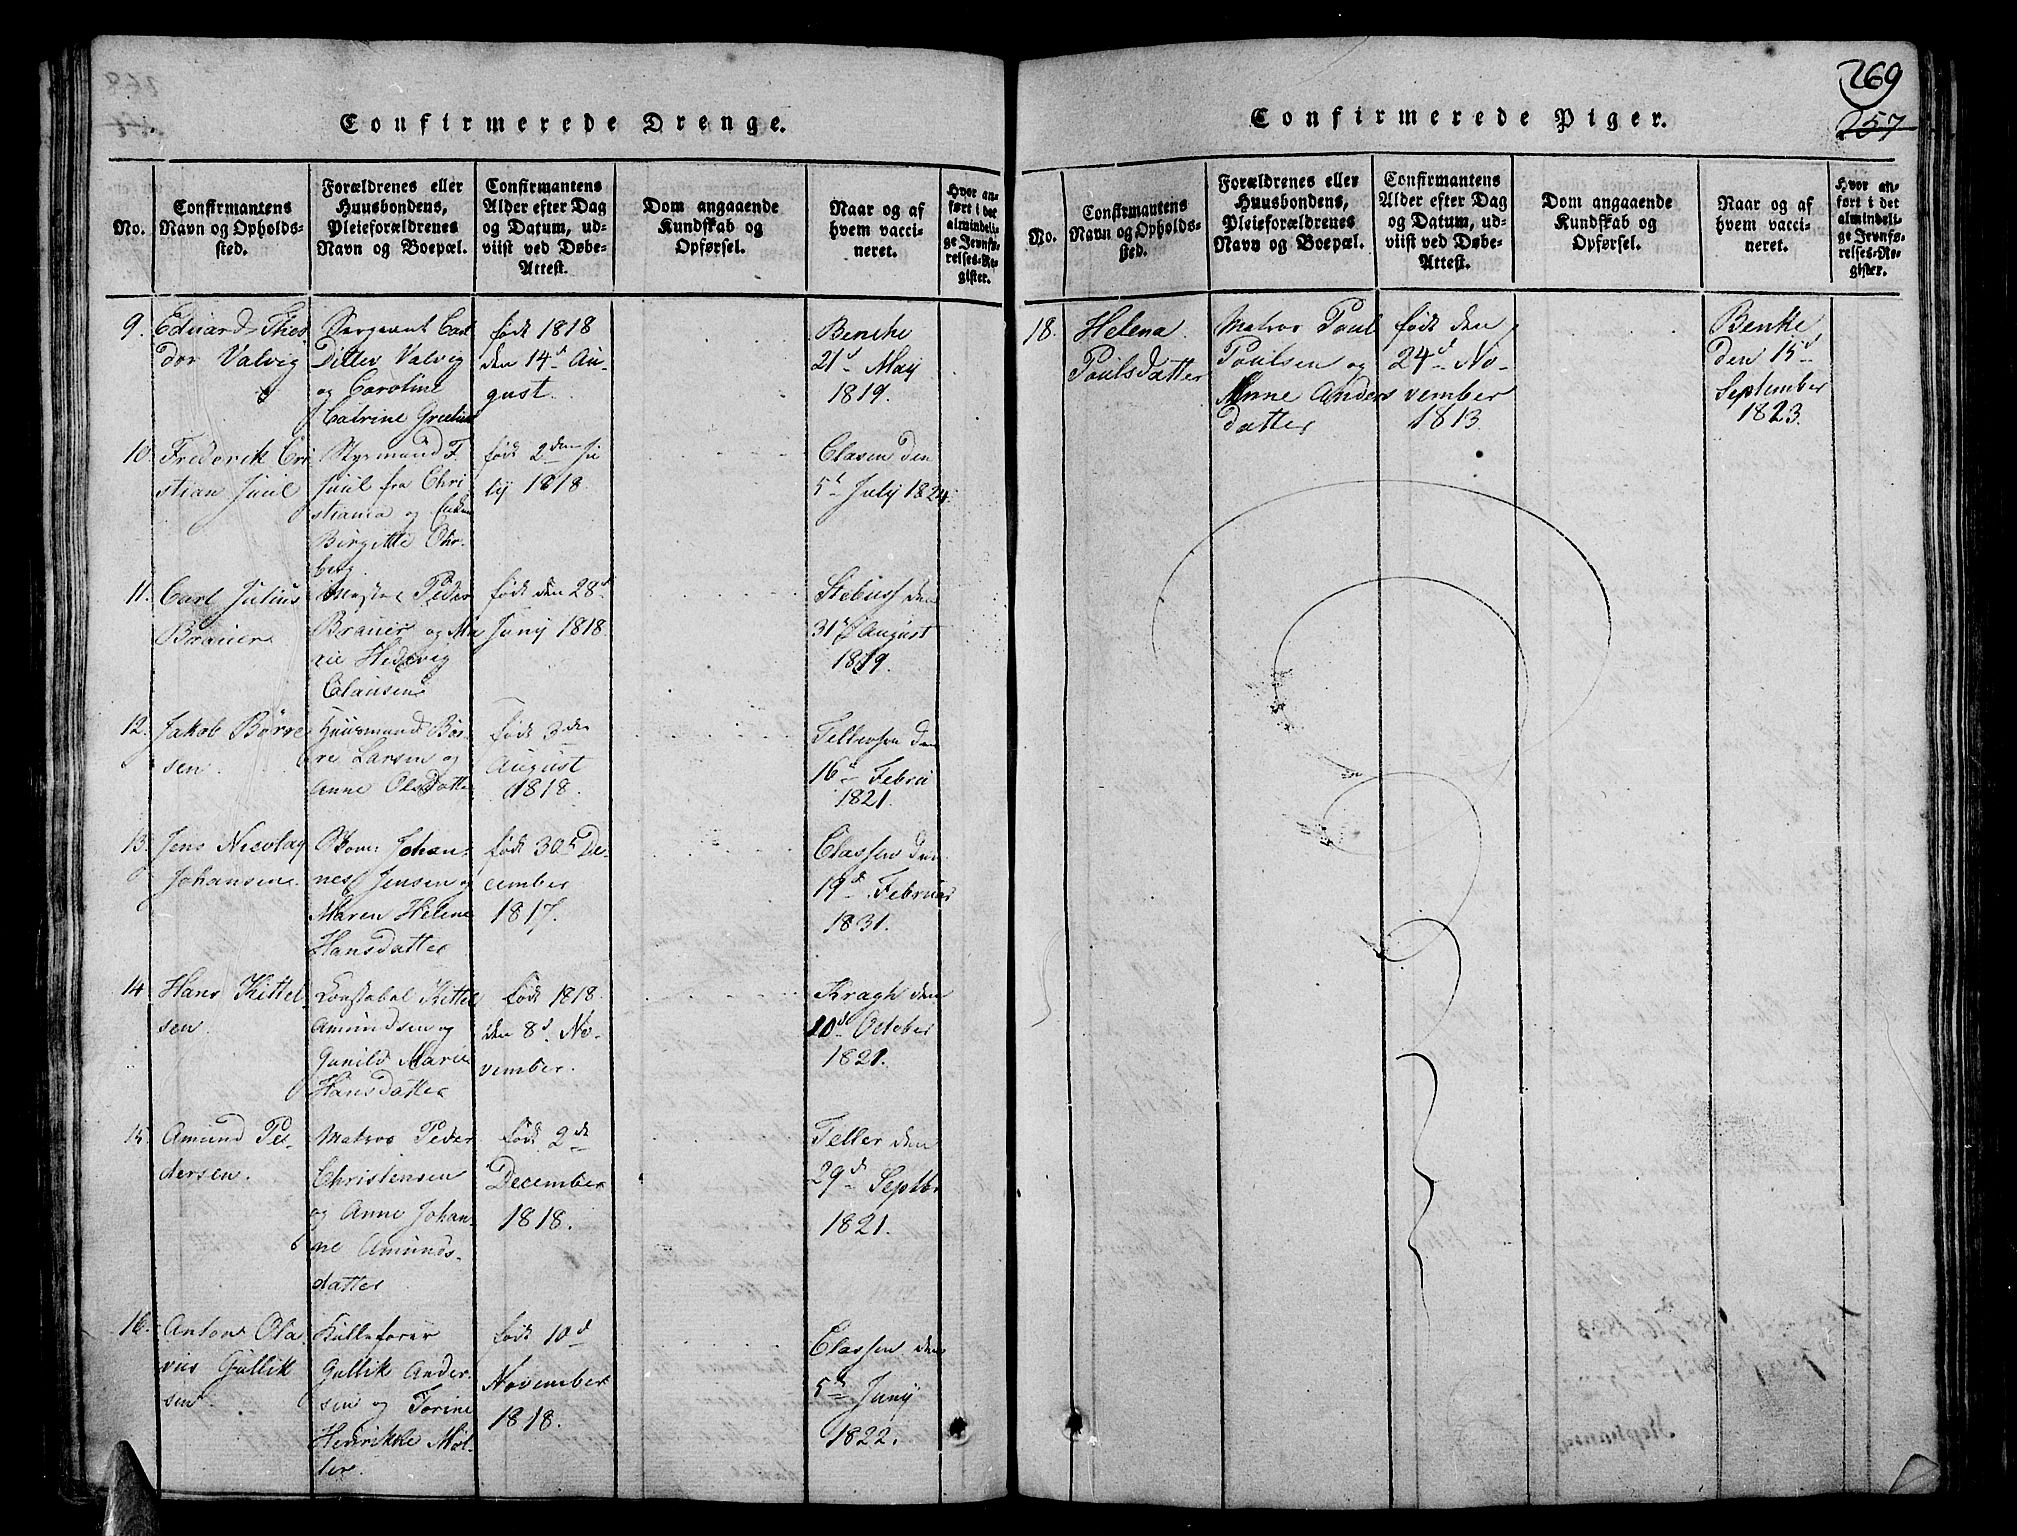 Confirmerede Drenge.
No.
Confirmantens
Navn og Opholds-
sted.
Forældrenes eller
Huusbondens,
Pleieforældrenes
Navn og Boepæl.
Confirmantens
Alder efter Dag
og Datum, ud-
viist ved Døbe-
Attest.
Dom angaaende
Kundskab og
Opførsel.
Naar og af
hvem vacci-
neret.
Hvor an-
ført i det
almindeli-
ge Jevnfø-
relses-Re-
gister.
9.
Eduard Theo
dor Valvig
Sergeant Carl
Ditlev Valvig
og Caroline
Catrine
født 1818
den 14d Au-
gust.
Benche
21d May
1819.
10.
Frederik Cri
stian Juul
Styrmand F.
Juul fra Chri
stiania og
Birgitte Ohr-
berg
født 2den Ju
ly 1818.
Clasen den
5t July 1824.
11.
Carl Julius
Brauer
Peder
Brauer og Ma
rie Hedevig
Clausen
født den 28d
Juny 1818.
den
31t August
1819.
12.
Jakob Børre
sen.
Huusmand Bør-
re Larsen og
Anne Olsdatte
født 3den
August
1818.
Tellefsen den
16d Febru
1821.
13.
Jens Nicolay
Johansen.
Johan-
nes Jensen og
Maren Helene
Hansdatter
født 30t De-
cember
1817.
Classen den
19d Februar
1831.
14.
Hans Kittel
sen.
Constabel Kittel
Amundsen og
Gunild Marie
Hansdatter
født 1818.
den 8d No-
vember.
Kragh den
20de October
1821.
15.
Amund Pe-
dersen.
Matros Peder
Christensen
og Anne Johan-
ne Amunds-
datter
født 2de
December
1818.
Teller den
29d Septbr
1821.
16.
Anton Ola
vus Gullik
sen.
Gullik Ander-
sen og Torine
Henrikke Møl-
ler.
født 10d
November
1818.
Classen den
5t Juny
1822.
269
257
Confirmerede Piger.
No.
Confirmantens
Navn og Opholds-
sted.
Forældrenes eller
Huusbondens,
Pleieforældrenes
Navn og Boepæl.
Confirmantens
Alder efter Dag
og Datum, ud-
viist ved Døbe-
Attest.
Dom angaaende
Kundskab og
Opførsel.
Naar og af
hvem vacci-
neret.
Hvor an-
ført i det
almindeli-
ge Jevnfø-
relses-Re-
gister.
18.
Helena
Poulsdatter
Matros Poul
Poulsen og
Anne Anders
datter
født den
24d No-
vember
1813.
Benke
den 15d
September
1823.